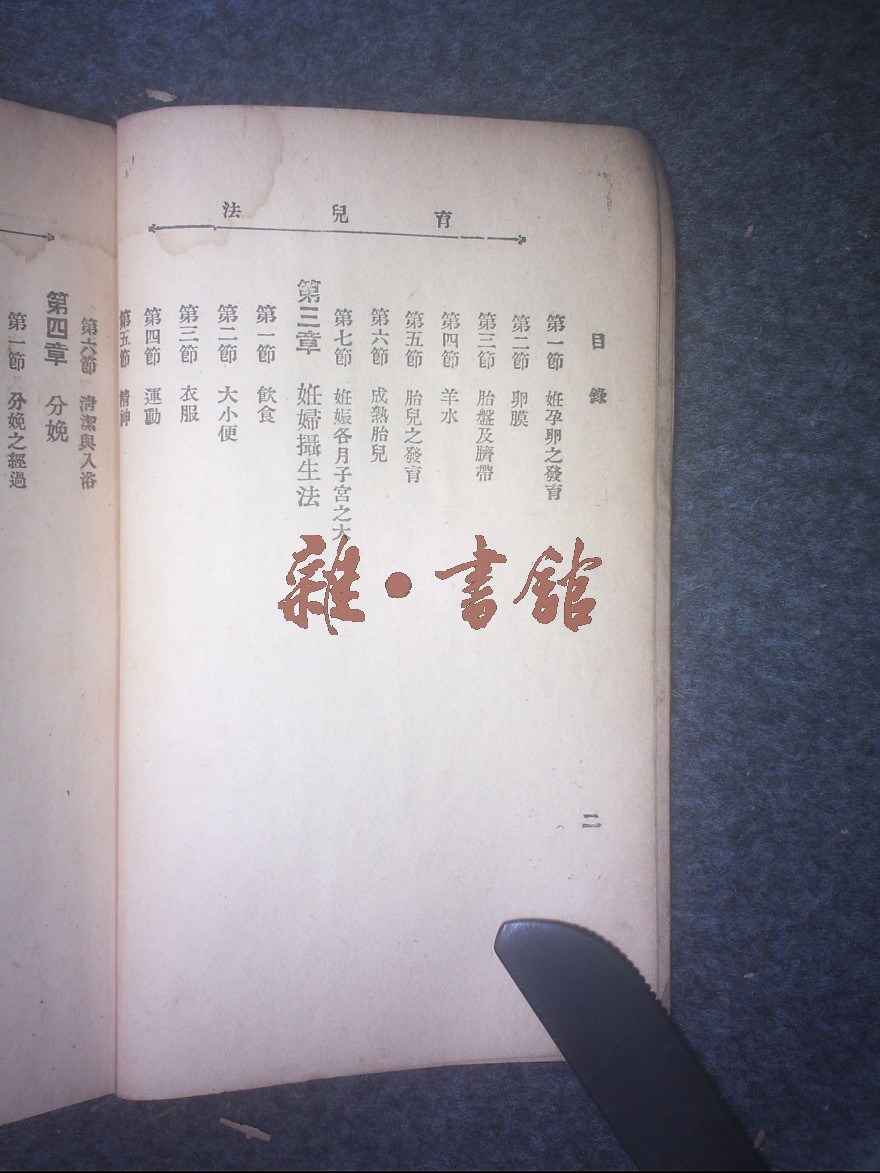 育兒法
目錄
第一節 姙孕卵之發育
第二節 卵膜
第三節 胎盤及臍帶
第四節 羊水
第五節 胎兒之發育
第六節 成熟胎兒
第七節 姙娠各月子宮之大
第三章 姙婦攝生法
第一節 飲食
第二節 大小便
第三節 衣服
第四節 運動
第五節 精神
二
第六節 淸潔與入浴
第四章 分娩
第一節 分娩之經過
雜・書館